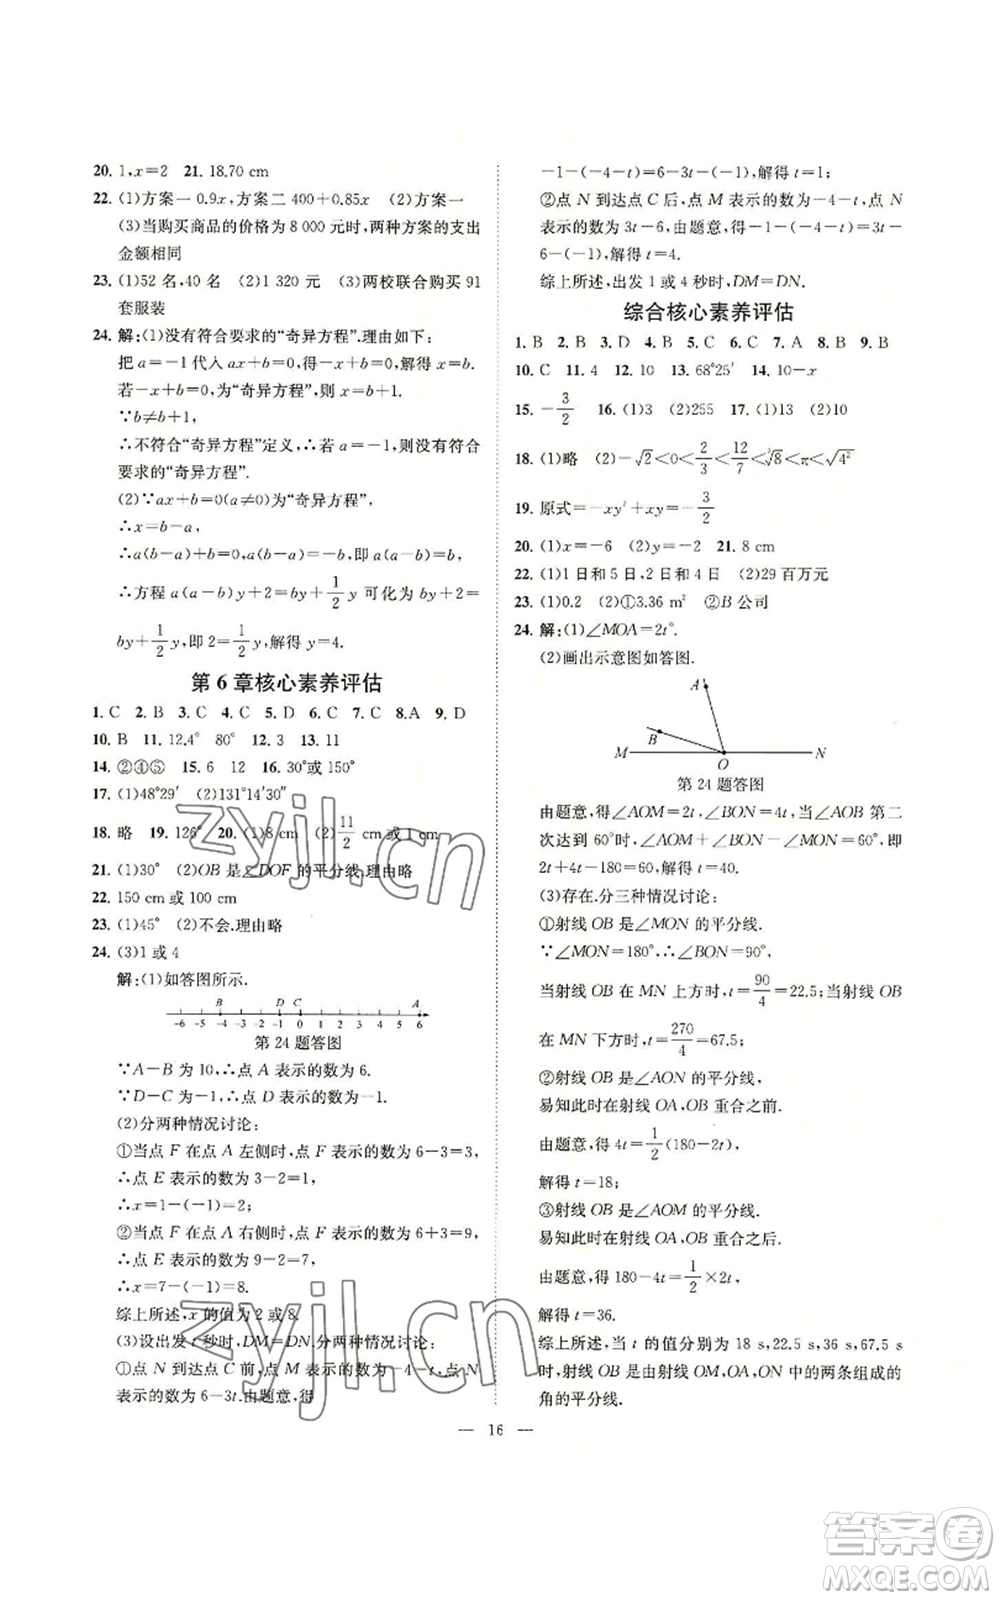 20. 1,x=2  21. 18.70 cm
22. (1)方案一 0.9x,方案二 400+0.85x  (2)方案一
(3)当购买商品的价格为 8 000 元时,两种方案的支出
金额相同
23. (1)52 名,40 名  (2)1 320 元  (3)两校联合购买 91
套服装
24. 解:(1)没有符合要求的“奇异方程”.理由如下:
把 a=-1 代入 ax+b=0,得-x+b=0,解得 x=b.
若-x+b=0,为“奇异方程”,则 x=b+1.
∵b≠b+1,
∴不符合“奇异方程”定义,∴若 a=-1,则没有符合
要求的“奇异方程”.
(2)∵ax+b=0(a≠0)为“奇异方程”,
∴x=b-a,
∴a(b-a)+b=0,a(b-a)=-b,即 a(a-b)=b,
∴方程 a(a-b)y+2=(b+1/2)y 可化为 by+2=
by+1/2 y,即 2=1/2 y,解得 y=4.
第 6 章核心素养评估
1. C  2. B  3. C  4. C  5. D  6. C  7. C  8.A  9. D
10. B  11. 12.4°  80°  12. 3  13. 11
14. ②④⑤  15. 6  12  16. 30°或 150°
17. (1)48°29′  (2)131°14′30″
18. 略  19. 126°  20. (1)8 cm  (2)11/2 cm 或 1 cm
21. (1)30°  (2)OB 是∠DOF 的平分线,理由略
22. 150 cm 或 100 cm
23. (1)45°  (2)不会.理由略
24. (3)1 或 4
解:(1)如答图所示.
B D C A
-6 -5 -4 -3 -2 -1 0 1 2 3 4 5 6
第 24 题答图
∵A-B 为 10,∴点 A 表示的数为 6.
∵D-C 为-1,∴点 D 表示的数为-1.
(2)分两种情况讨论:
①当点 F 在点 A 左侧时,点 F 表示的数为 6-3=3,
∴点 E 表示的数为 3-2=1,
∴x=1-(-1)=2;
②当点 F 在点 A 右侧时,点 F 表示的数为 6+3=9,
∴点 E 表示的数为 9-2=7,
∴x=7-(-1)=8.
综上所述,x 的值为 2 或 8.
(3)设出发 t 秒时,DM=DN.分两种情况讨论:
①点 N 到达点 C 前,点 M 表示的数为-4-t,点 N
表示的数为 6-3t.由题意,得
-1-(-4-t)=6-3t-(-1),解得 t=1;
②点 N 到达点 C 后,点 M 表示的数为-4-t,点 N
表示的数为 3t-6,由题意,得-1-(-4-t)=3t-
6-(-1),解得 t=4.
综上所述,出发 1 或 4 秒时,DM=DN.
综合核心素养评估
1. B  2. B  3. D  4. B  5. C  6. C  7. A  8. B  9. B
10. C  11. 4  12. 10  13. 68°25′  14. 10-x
15. -3/2  16. (1)3  (2)255  17. (1)13  (2)10
18. (1)略  (2)-√2<0<2/3<12/7<∛8<π<√4²
19. 原式=-xy²+xy=-3/2
20. (1)x=-6  (2)y=-2  21. 8 cm
22. (1)1 日和 5 日,2 日和 4 日  (2)29 百万元
23. (1)0.2  (2)①3.36 m²  ②B 公司
24. 解:(1)∠MOA=2t°.
(2)画出示意图如答图.
A
B
M O N
第 24 题答图
由题意,得∠AOM=2t,∠BON=4t,当∠AOB 第二
次达到 60°时,∠AOM+∠BON-∠MON=60°,即
2t+4t-180=60,解得 t=40.
(3)存在.分三种情况讨论:
①射线 OB 是∠MON 的平分线.
∵∠MON=180°,∴∠BON=90°,
当射线 OB 在 MN 上方时,t=90/4=22.5;当射线 OB
在 MN 下方时,t=270/4=67.5;
②射线 OB 是∠AON 的平分线,
易知此时在射线 OA,OB 重合之前.
由题意,得 4t=1/2(180-2t),
解得 t=18;
③射线 OB 是∠AOM 的平分线.
易知此时在射线 OA,OB 重合之后.
由题意,得 180-4t=1/2×2t,
解得 t=36.
综上所述,当 t 的值分别为 18 s,22.5 s,36 s,67.5 s
时,射线 OB 是由射线 OM,OA,ON 中的两条组成的
角的平分线.
— 16 —
zyjl.cn
zyjl.cn
答案圈
MXQE.COM